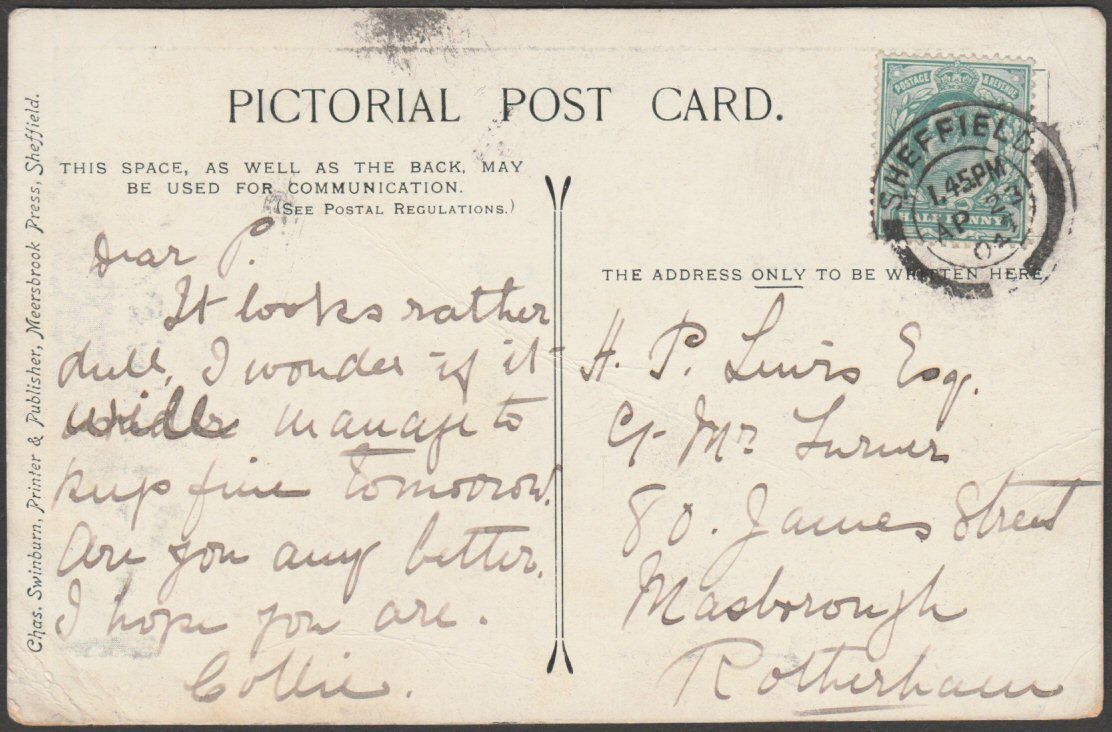 PICTORIAL POST CARD.
THIS SPACE, AS WELL AS THE BACK, MAY
BE USED FOR COMMUNICATION.
(SEE POSTAL REGULATIONS.)
Dear P.
It looks rather
dull, I wonder if it
will manage to
keep fine tomorrow.
Are you any better.
I hope you are.
Collie.
POSTAGE & REVENUE
HALF PENNY
SHEFFIELD
1.45PM
AP 23
04
THE ADDRESS ONLY TO BE WRITTEN HERE.
H. P. Lewis Esq.
C/- Mr Turner
80. James Street
Masborough
Rotherham
Chas. Swinburn, Printer & Publisher, Meersbrook Press, Sheffield.